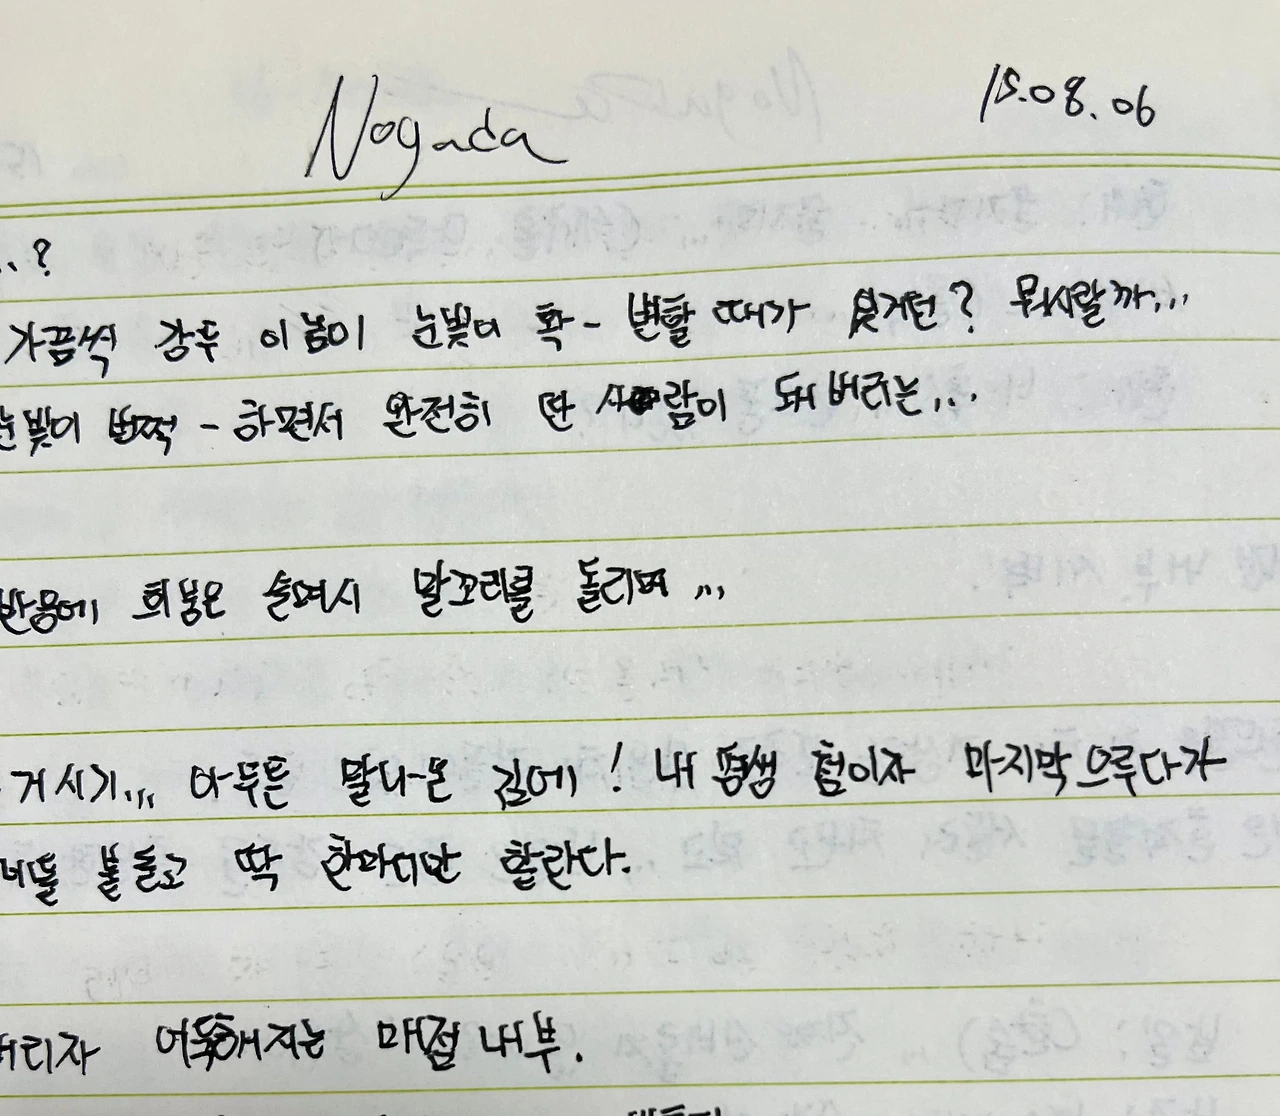 Nogada 15.08.06
..?
가끔씩 강두 이놈이 눈빛이 확- 변할 때가 있거던? 뭐시랄까...
눈빛이 번쩍 - 하면서 완전히 딴 사람이 돼버리는...
반응에 희봉은 슬며시 말꼬리를 돌리며...
거시기... 아무튼 말나온 김에! 내 평생 첨이자 마지막으루다가
너덜 붙들고 딱 한마디만 할란다.
버리자 어둑해지는 매점 내부.